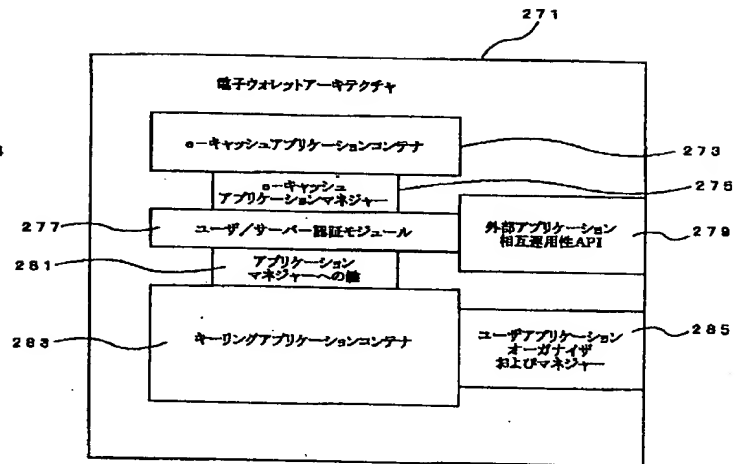 271
電子ウォレットアーキテクチャ
e－キャッシュアプリケーションコンテナ
273
e－キャッシュ
アプリケーションマネジャー
275
277
ユーザ／サーバー認証モジュール
外部アプリケーション
相互運用性API
279
281
アプリケーション
マネジャーへの鍵
283
キーリングアプリケーションコンテナ
ユーザアプリケーション
オーガナイザ
およびマネジャー
285